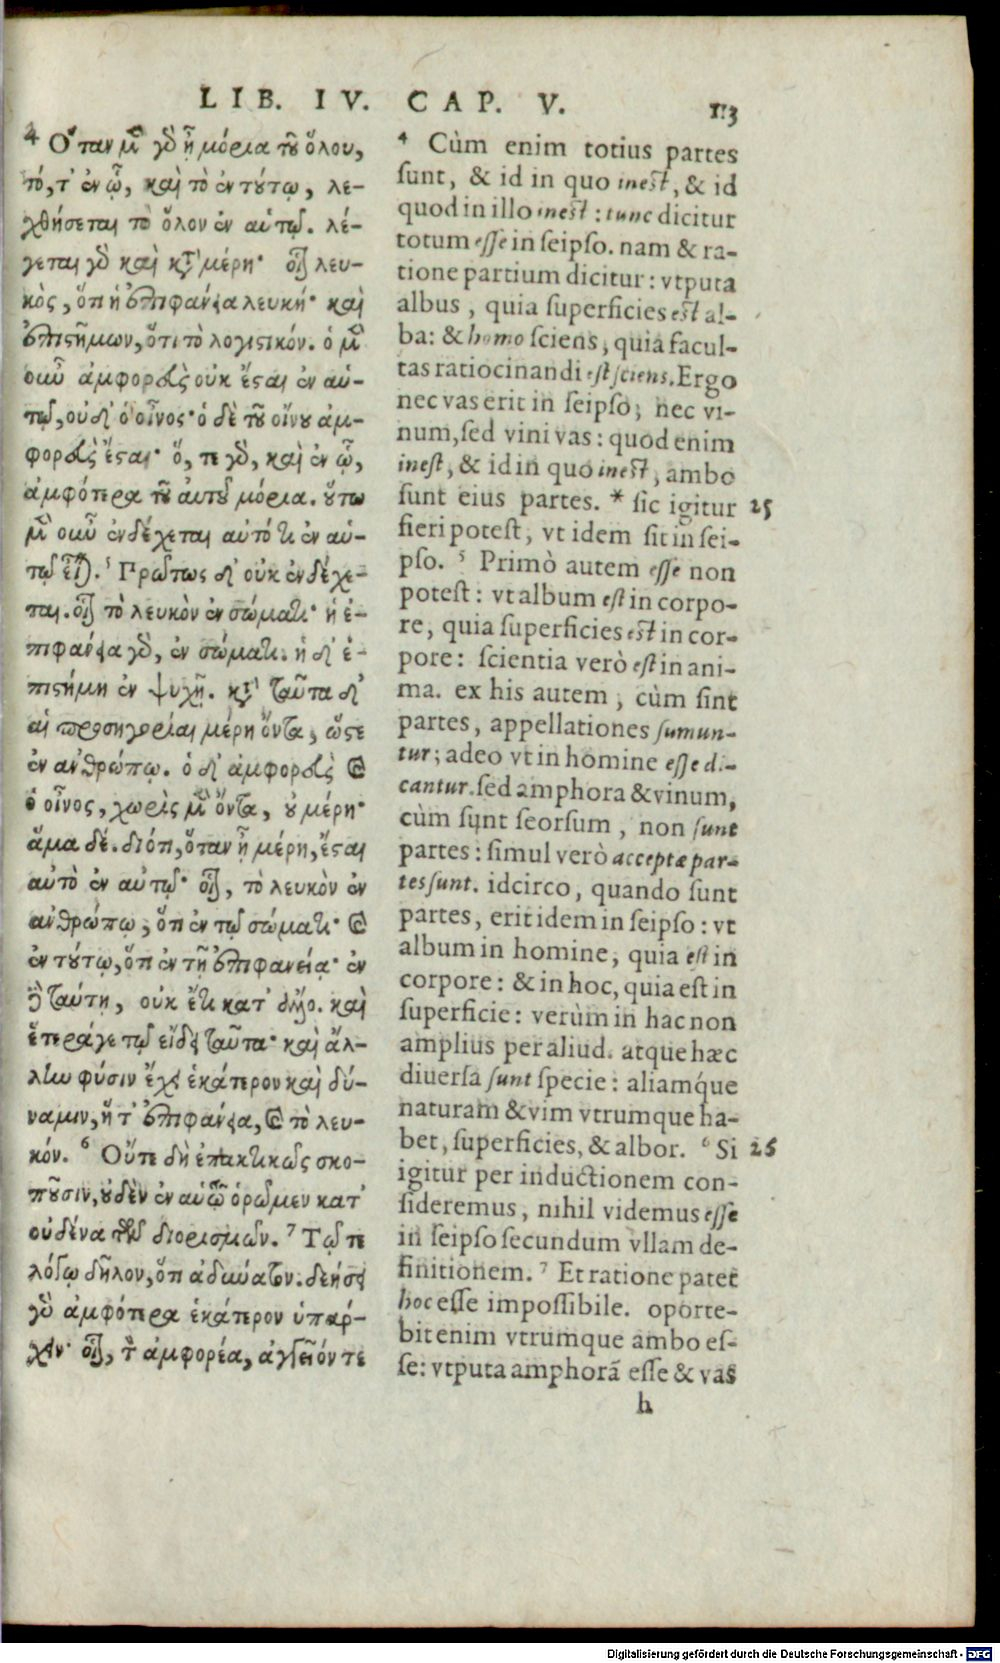 LIB. IV. CAP. V. 113
4 Ὅταν μὲν γὸ ᾖ μόρια τοῦ ὅλου,
τό, τ' ἐν ᾧ, καὶ τὸ ἐν τούτῳ, λε-
χθήσεται τὸ ὅλον ἐν αὑτῷ. λέ-
γεται γὸ καὶ κτ̀ μέρη· οἷον λευ-
κὸς, ὅτι ἡ ἐπιφάνεια λευκή· καὶ
ἐπιστήμων, ὅτι τὸ λογιστικόν. ὁ μὲν
οὖν ἀμφορεὺς οὐκ ἔσται ἐν αὑ-
τῷ, οὐδ' ὁ οἶνος· ὁ δὲ τοῦ οἴνου ἀμ-
φορεὺς ἔσται· ὅ, τε γὸ, καὶ ἐν ᾧ,
ἀμφότερα τοῦ αὐτοῦ μόρια. οὕτω
μὲν οὖν ἐνδέχεται αὐτό τι ἐν αὑ-
τῷ εἶναι. 5 Πρώτως δ' οὐκ ἐνδέχε-
ται. οἷον τὸ λευκὸν ἐν σώματι· ἡ ἐ-
πιφάνεια γὸ, ἐν σώματι. ἡ δ' ἐ-
πιστήμη ἐν ψυχῇ. κτ̀ ταῦτα δ'
αἱ προσηγορίαι μέρη ὄντα, ὥστε
ἐν ἀνθρώπῳ. ὁ δ' ἀμφορεὺς καὶ
ὁ οἶνος, χωρὶς μὲν ὄντα, οὐ μέρη·
ἅμα δέ. διόπ, ὅταν ᾖ μέρη, ἔσται
αὐτὸ ἐν αὑτῷ· οἷον, τὸ λευκὸν ἐν
ἀνθρώπῳ, ὅτι ἐν τῷ σώματι· καὶ
ἐν τούτῳ, ὅτι ἐν τῇ ἐπιφανείᾳ· ἐν
δὲ ταύτῃ, οὐκ ἔτι κατ' ἄλλο. καὶ
ἕτερά γε τῷ εἴδει ταῦτα· καὶ ἄλ-
λην φύσιν ἔχει ἑκάτερον καὶ δύ-
ναμιν, ἥ τ' ἐπιφάνεια, καὶ τὸ λευ-
κόν. 6 Οὔτε δὴ ἐπακτικῶς σκο-
ποῦσιν, οὐδὲν ἐν αὑτῷ ὁρῶμεν κατ'
οὐδένα τῶν διορισμῶν. 7 Τῷ τε
λόγῳ δῆλον, ὅτι ἀδύνατον. δεήσει
γὸ ἀμφότερα ἑκάτερον ὑπάρ-
χειν· οἷον, τὸ ἀμφορέα, ἀγγεῖόν τε
4 Cùm enim totius partes
sunt, & id in quo inest, & id
quod in illo inest: tunc dicitur
totum esse in seipso. nam & ra-
tione partium dicitur: vtputa
albus, quia superficies est al-
ba: & homo sciens, quia facul-
tas ratiocinandi est sciens. Ergo
nec vas erit in seipso, nec vi-
num, sed vini vas: quod enim
inest, & id in quo inest, ambo
sunt eius partes. * sic igitur 25
fieri potest, vt idem sit in sei-
pso. 5 Primò autem esse non
potest: vt album est in corpo-
re, quia superficies est in cor-
pore: scientia verò est in ani-
ma. ex his autem, cùm sint
partes, appellationes sumun-
tur; adeo vt in homine esse di-
cantur. sed amphora & vinum,
cùm sunt seorsum, non sunt
partes: simul verò acceptæ par-
tes sunt. idcirco, quando sunt
partes, erit idem in seipso: vt
album in homine, quia est in
corpore: & in hoc, quia est in
superficie: verùm in hac non
amplius per aliud. atque hæc
diuersa sunt specie: aliamq́ue
naturam & vim vtrumque ha-
bet, superficies, & albor. 6 Si 26
igitur per inductionem con-
sideremus, nihil videmus esse
in seipso secundum vllam de-
finitionem. 7 Et ratione patet
hoc esse impossibile. oporte-
bit enim vtrumque ambo es-
se: vtputa amphorã esse & vas
h
Digitalisierung gefördert durch die Deutsche Forschungsgemeinschaft - DFG